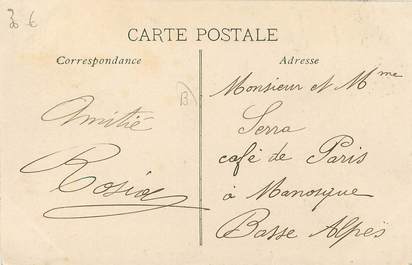 30 €
CARTE POSTALE
Correspondance
Adresse
B
Amitié
Rosia
Monsieur et Mme
Serra
café de Paris
à Manosque
Basse Alpes